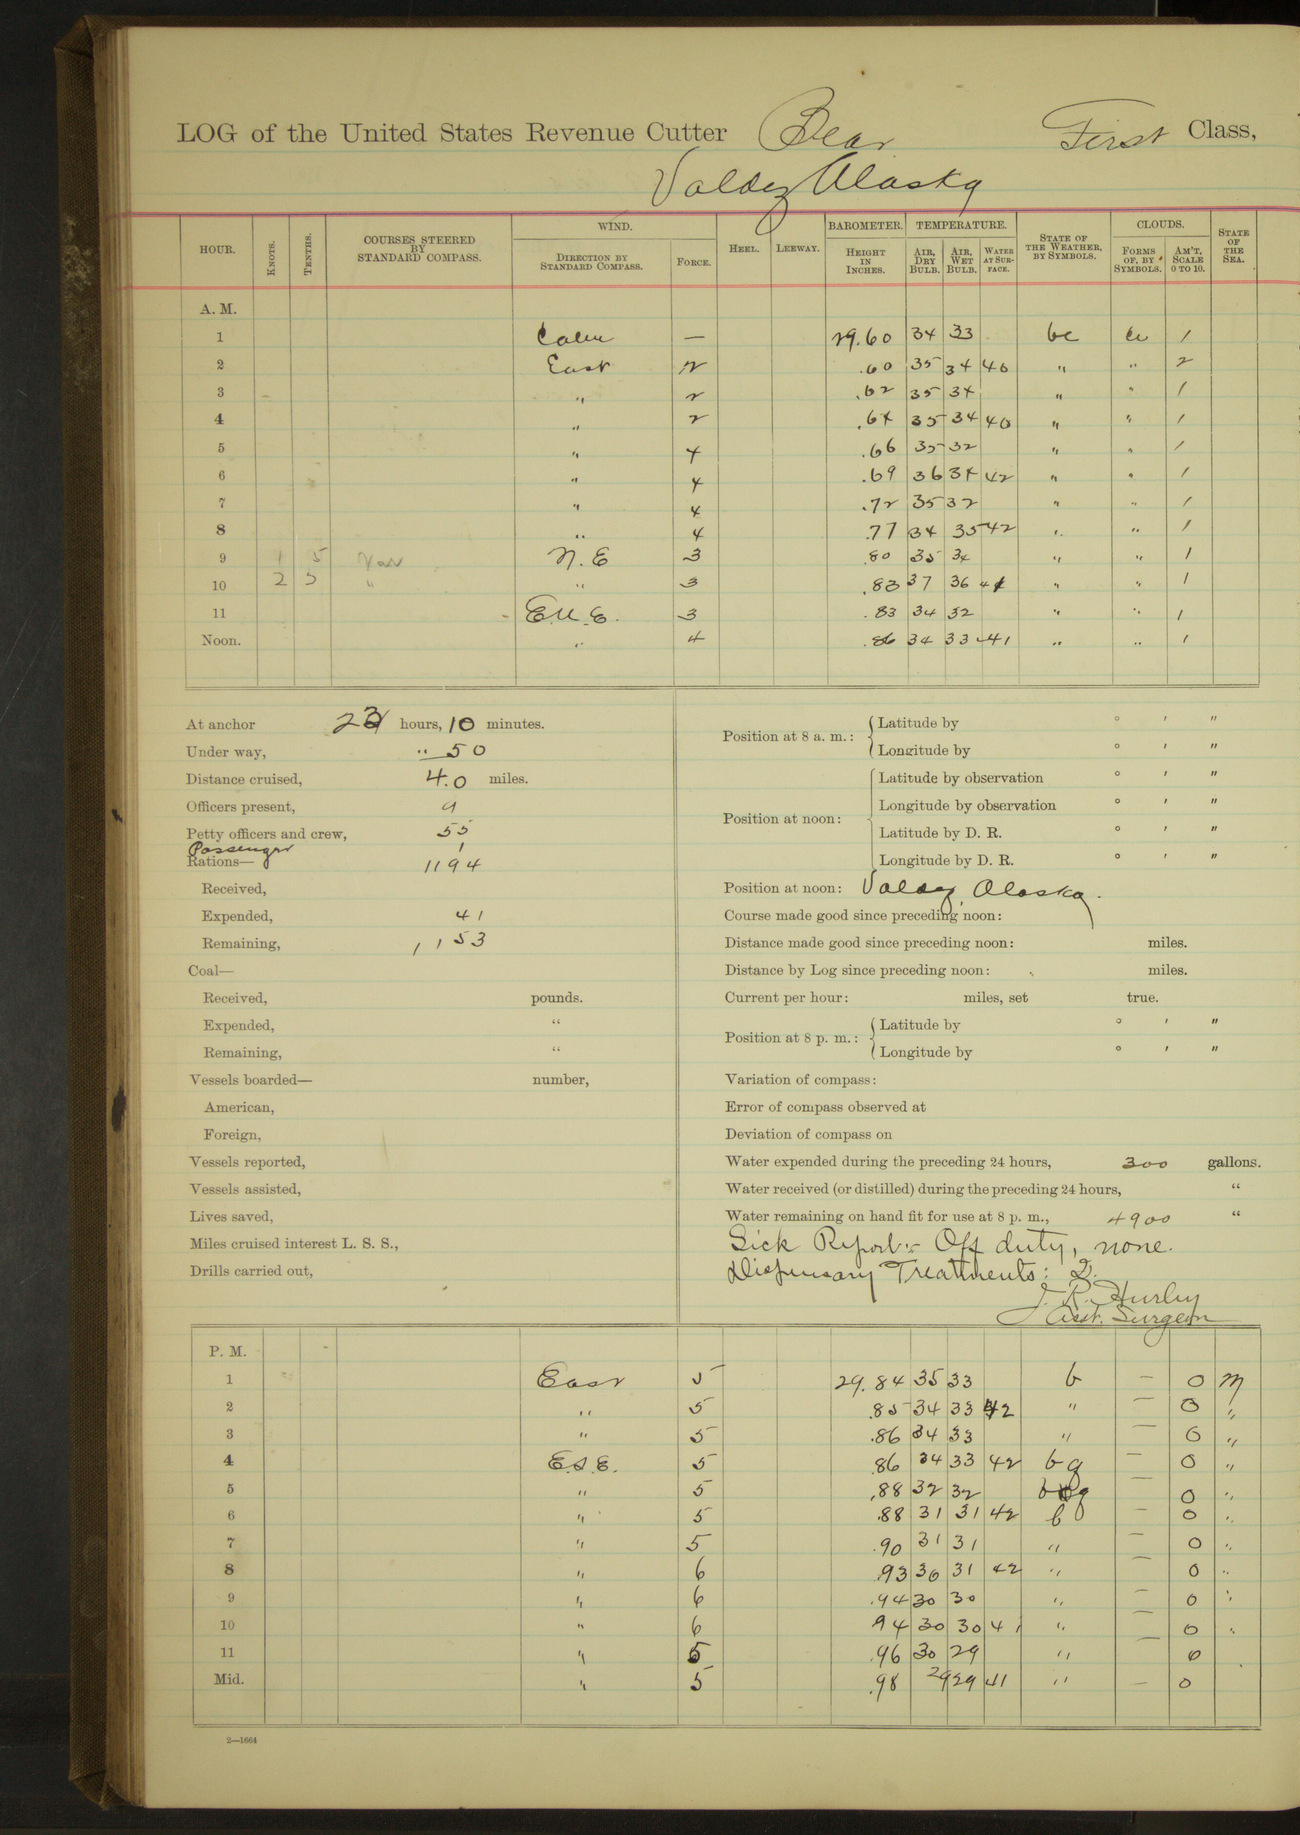 LOG of the United States Revenue Cutter Bear First Class,
Valdez Alaska
HOUR. KNOTS. TENTHS. COURSES STEERED BY STANDARD COMPASS. WIND. DIRECTION BY STANDARD COMPASS. FORCE. HEEL. LEEWAY. BAROMETER. HEIGHT IN INCHES. TEMPERATURE. AIR, DRY BULB. AIR, WET BULB. WATER AT SURFACE. STATE OF THE WEATHER, BY SYMBOLS. CLOUDS. FORMS OF, BY SYMBOLS. AM'T, SCALE 0 TO 10. STATE OF THE SEA.
A. M.
1 Calm — 29.60 34 33 bc cu 1
2 East 2 .60 35 34 40 " " 2
3 " 2 .62 35 34 " " 1
4 " 2 .64 35 34 40 " " 1
5 " 4 .66 35 32 " " 1
6 " 4 .69 36 34 42 " " 1
7 " 4 .72 35 32 " " 1
8 " 4 .77 34 35 42 " " 1
9 1 5 Var N. E 3 .80 35 34 " " 1
10 2 5 " " 3 .83 37 36 41 " " 1
11 E.N.E. 3 .83 34 32 " " 1
Noon. " 4 .86 34 33 41 " " 1
At anchor 23 hours, 10 minutes.
Under way, " 50
Distance cruised, 4.0 miles.
Officers present, 9
Petty officers and crew, 55
Passenger 1
Rations— 1194
Received,
Expended, 41
Remaining, 1153
Coal—
Received, pounds.
Expended, "
Remaining, "
Vessels boarded— number,
American,
Foreign,
Vessels reported,
Vessels assisted,
Lives saved,
Miles cruised interest L. S. S.,
Drills carried out,
Position at 8 a. m.: Latitude by ° ′ ″
Longitude by ° ′ ″
Position at noon: Latitude by observation ° ′ ″
Longitude by observation ° ′ ″
Latitude by D. R. ° ′ ″
Longitude by D. R. ° ′ ″
Position at noon: Valdez, Alaska.
Course made good since preceding noon:
Distance made good since preceding noon: miles.
Distance by Log since preceding noon: miles.
Current per hour: miles, set true.
Position at 8 p. m.: Latitude by ° ′ ″
Longitude by ° ′ ″
Variation of compass:
Error of compass observed at
Deviation of compass on
Water expended during the preceding 24 hours, 300 gallons.
Water received (or distilled) during the preceding 24 hours, "
Water remaining on hand fit for use at 8 p. m., 4900 "
Sick Report:- Off duty, none.
Dispensary Treatments: 2.
J. R. Hurley
Asst. Surgeon
P. M.
1 East 5 29.84 35 33 b — 0 M
2 " 5 .85 34 33 42 " — 0 "
3 " 5 .86 34 33 " — 0 "
4 E.S.E. 5 .86 34 33 42 bq — 0 "
5 " 5 .88 32 32 bq — 0 "
6 " 5 .88 31 31 42 b — 0 "
7 " 5 .90 31 31 " — 0 "
8 " 6 .93 30 31 42 " — 0 "
9 " 6 .94 30 30 " — 0 "
10 " 6 .94 30 30 41 " — 0 "
11 " 5 .96 30 29 " — 0
Mid. " 5 .98 29 29 41 " — 0
2—1664